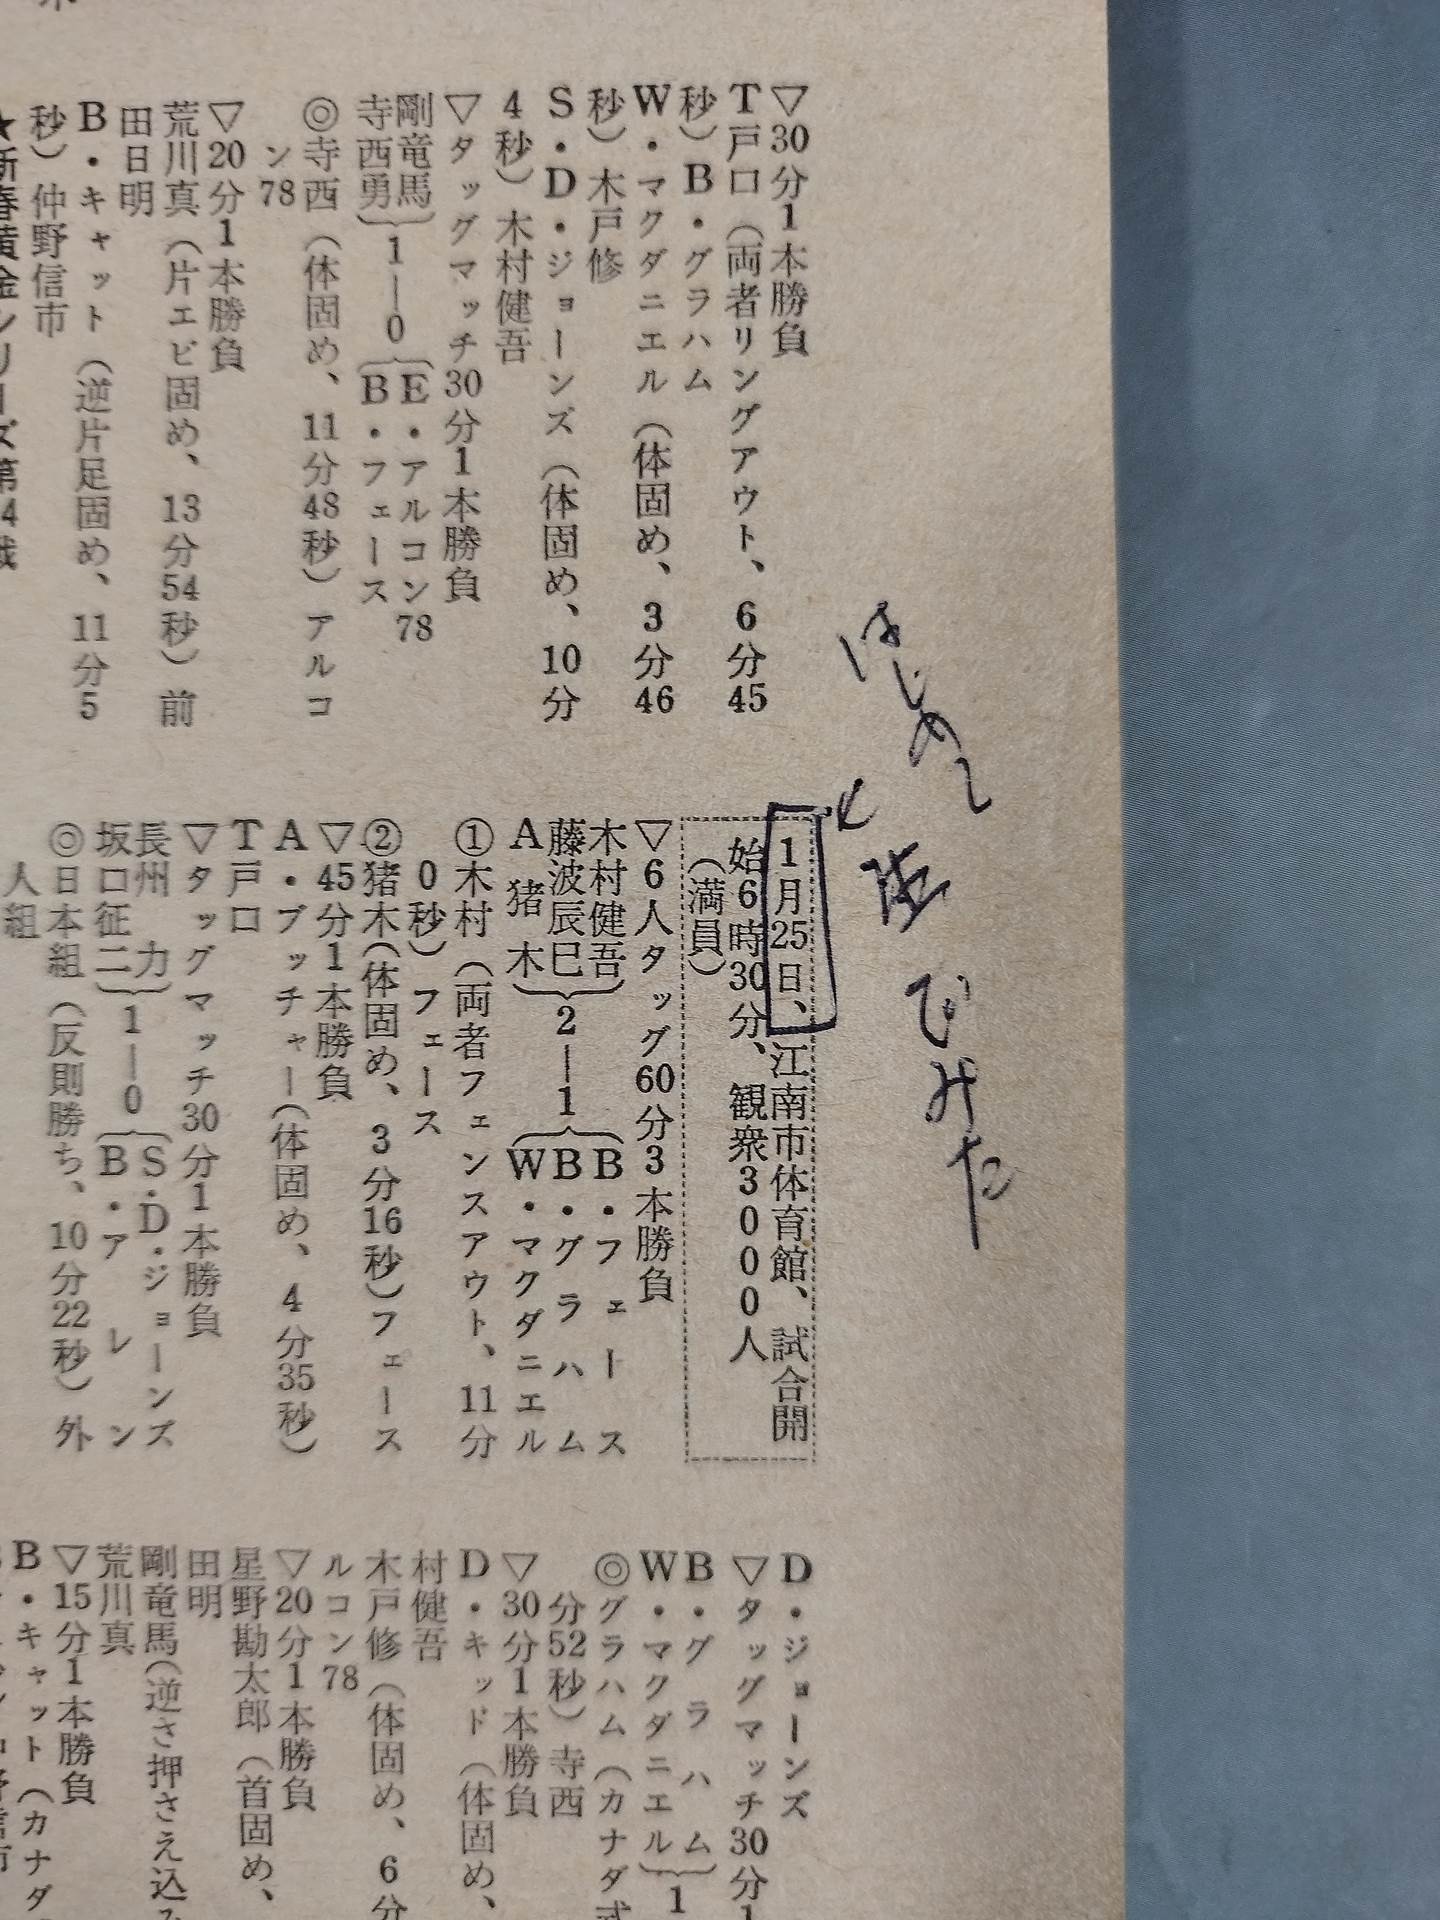 ▽30分1本勝負
T戸口（両者リングアウト、6分45
秒）B・グラハム
W・マクダニエル（体固め、3分46
秒）木戸修
S・D・ジョーンズ（体固め、10分
4秒）木村健吾
▽タッグマッチ30分1本勝負
剛竜馬
寺西勇
1―0
E・アルコン78
B・フェース
◎寺西（体固め、11分48秒）アルコ
ン78
▽20分1本勝負
荒川真（片エビ固め、13分54秒）前
田日明
B・キャット（逆片足固め、11分5
秒）仲野信市
★新春黄金シリーズ第14戦
はじめて
生でみた
1月25日、江南市体育館、試合開
始6時30分、観衆3000人
（満員）
▽6人タッグ60分3本勝負
木村健吾
藤波辰巳
A猪木
2―1
B・フェース
B・グラハム
W・マクダニエル
①木村（両者フェンスアウト、11分
0秒）フェース
②猪木（体固め、3分16秒）フェース
▽45分1本勝負
A・ブッチャー（体固め、4分35秒）
T戸口
▽タッグマッチ30分1本勝負
長州力
坂口征二
1―0
S・D・ジョーンズ
B・アレン
◎日本組（反則勝ち、10分22秒）外
人組
D・ジョーンズ
▽タッグマッチ30分1
B・グラハム
W・マクダニエル
1
◎グラハム（カナダ式
分52秒）寺西
▽30分1本勝負
D・キッド（体固め、
村健吾
木戸修（体固め、6分
ルコン78
▽20分1本勝負
星野勘太郎（首固め、
田明
剛竜馬（逆さ押さえ込み
荒川真
▽15分1本勝負
B・キャット（カナダ